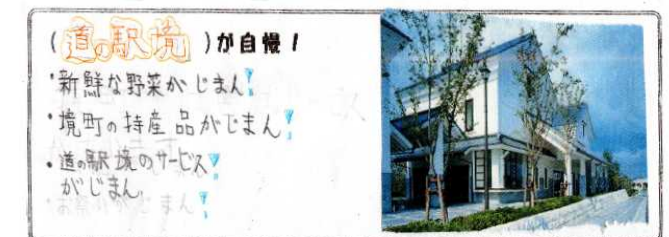 (道の駅境)が自慢!
・新鮮な野菜がじまん!
・境町の持産品がじまん!
・道の駅境のサービス!
がじまん。